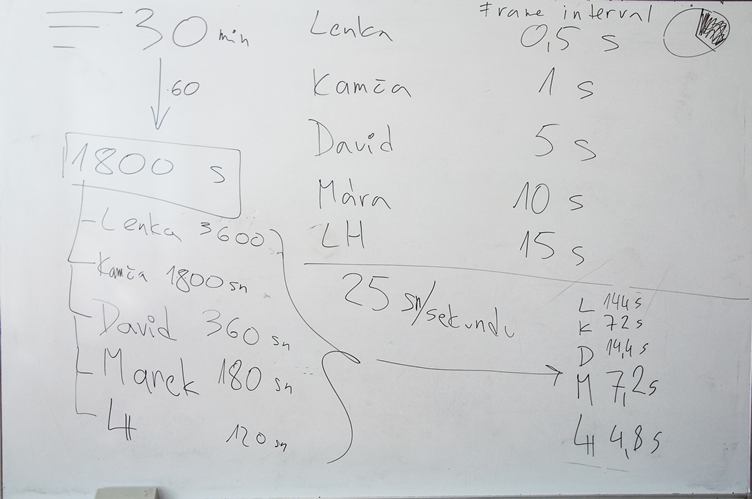 30 min
·60
1800 s
Lenka 3600
Kamča 1800 sn
David 360 sn
Marek 180 sn
LH 120 sn
Frame interval
Lenka 0,5 s
Kamča 1 s
David 5 s
Mára 10 s
LH 15 s
25 sn/sekundu
L 144 s
K 72 s
D 14,4 s
M 7,2 s
LH 4,8 s